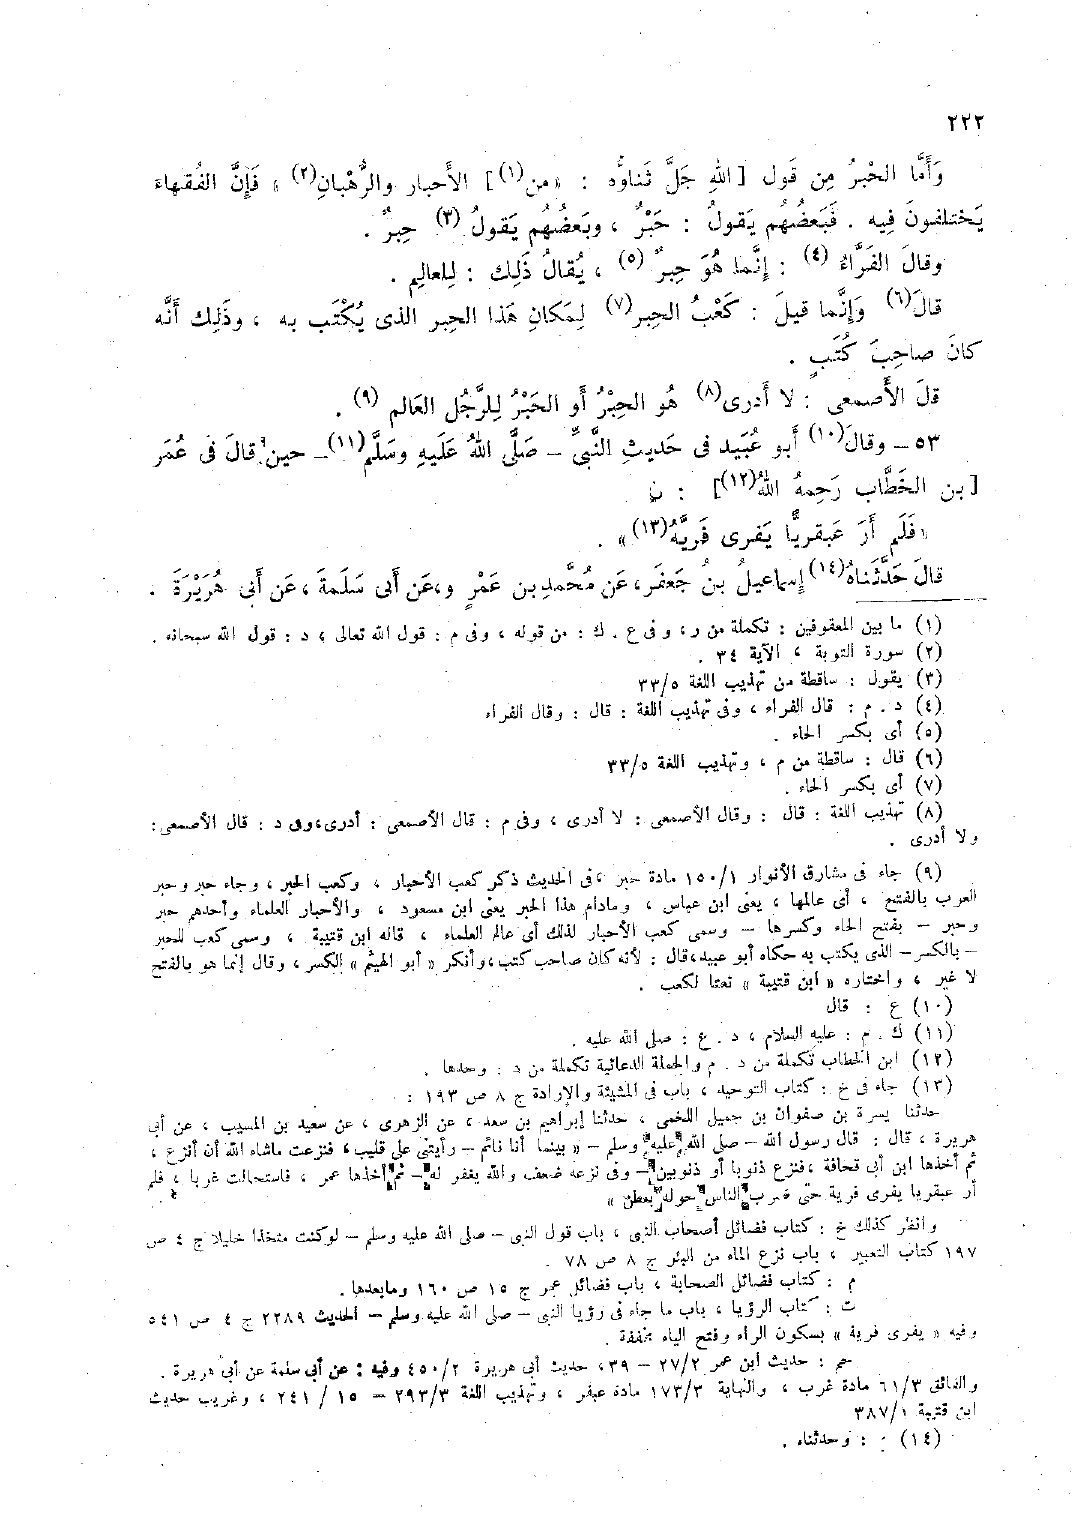 ٢٢٢
وَأَمَّا الحْبرُ مِن قَول [اللهِ جَلَّ ثَناوُّه : «من(١)] الأَحبار والرُّهْبانِ(٢) » فَإِنَّ الفُقهاءَ
يَختلفونَ فِيه . فَبَعضُهُم يَقولُ : حَبْرٌ ، وبَعضُهُم يَقولُ (٣) حِبرٌ .
وقالَ الفَرَّاءُ (٤) : إِنَّما هُوَ حِبرٌ (٥) ، يُقالُ ذَلِك : لِلعالِم .
قالَ(٦) وَإِنَّما قيلَ : كَعْبُ الحِبر(٧) لِمَكانِ هَذا الحِبر الذى يُكْتَب به ، وذَلِك أَنَّه
كانَ صاحِبَ كُتَبٍ .
قلَ الأَصمعى : لا أَدرى(٨) هُو الحِبْرُ أَو الحَبْرُ لِلرَّجُل العَالم (٩) .
٥٣ – وقالَ(١٠) أَبو عُبَيد فى حَديثِ النَّبىِّ – صَلَّى اللهُ عَلَيهِ وسَلَّم(١١) – حين قالَ فى عُمَر
[بن الخَطَّاب رَحِمهُ اللهُ(١٢)] :
«فَلَم أَرَ عَبقريًّا يَفرى فَريَّهُ(١٣)» .
قالَ حَدَّثَناهُ(١٤) إِسماعيلُ بنُ جَعفَر، عَن مُحَّمدِ بن عَمْرٍ و، عَن أَبى سَلَمةَ ، عَن أَبى هُرَيْرَةَ .
(١) ما بين المعقوفين : تكملة من ر، و فى ع . ك : من قوله ، وفى م : قول الله تعالى ، د : قول الله سبحانه .
(٢) سورة التوبة ، الآية ٣٤ .
(٣) يقول : ساقطة من تهذيب اللغة ٥/٣٣
(٤) د . م : قال الفراء ، وفى تهذيب اللغة : قال : وقال الفراء
(٥) أى بكسر الحاء .
(٦) قال : ساقطة من م ، وتهذيب اللغة ٥/٣٣
(٧) أى بكسر الحاء .
(٨) تهذيب اللغة : قال : وقال الأصمعى : لا أدرى ، وفى م : قال الأصمعى : أدرى، وفى د : قال الأصمعى :
ولا أدرى .
(٩) جاء فى مشارق الأنوار ١/١٥٠ مادة حبر ، فى الحديث ذكر كعب الأحبار ، وكعب الحبر ، وجاء حبر وحبر
العرب بالفتح ، أى عالمها ، يعنى ابن عباس ، ومادام هذا الحبر يعنى ابن مسعود ، والأحبار العلماء وأحدهم حبر
وحبر – بفتح الحاء وكسرها – وسمى كعب الأحبار لذلك أى عالم العلماء ، قاله ابن قتيبة ، وسمى كعب للحبر
– بالكسر – الذى يكتب به حكاه أبو عبيد، قال : لأنه كان صاحب كتب، وأنكر « أبو الهيثم » الكسر ، وقال إنما هو بالفتح
لا غير ، واختاره « ابن قتيبة » نعتا لكعب .
(١٠) ع : قال
(١١) ك . م : عليه السلام ، د . ع : صلى الله عليه .
(١٢) ابن الخطاب تكملة من د . م والجملة الدعائية تكملة من د : وحدها .
(١٣) جاء فى خ : كتاب التوحيد ، باب فى المشيئة والإرادة ج ٨ ص ١٩٣ :
حدثنا يسرة بن صفوان بن جميل اللخمى ، حدثنا إبراهيم بن سعد ، عن الزهرى ، عن سعيد بن المسيب ، عن أبى
هريرة ، قال : قال رسول الله – صلى الله عليه وسلم – « بينما أنا نائم – رأيتنى على قليب ، فنزعت ماشاء الله أن أنزع ،
ثم أخذها ابن أبى قحافة ، فنزع ذنوبا أو ذنوبين – وفى نزعه ضعف والله يغفر له – ثم أخذها عمر ، فاستحالت غربا ، فلم
أر عبقريا يفرى فرية حتى ضرب الناس حوله بعطن »
وانظر كذلك خ : كتاب فضائل أصحاب النبى ، باب قول النبى – صلى الله عليه وسلم – لوكنت متخذا خليلا ج ٤ ص
١٩٧ كتاب التعبير ، باب نزع الماء من البئر ج ٨ ص ٧٨ .
م : كتاب فضائل الصحابة ، باب فضائل عمر ج ١٥ ص ١٦٠ ومابعدها .
ت : كتاب الرؤيا ، باب ما جاء فى رؤيا النبى – صلى الله عليه وسلم – الحديث ٢٢٨٩ ج ٤ ص ٥٤١
وفيه « يفرى فرية » بسكون الراء وفتح الياء مخففة .
حم : حديث ابن عمر ٢/٢٧ – ٣٩، حديث أبى هريرة ٢/٤٥٠ وفيه : عن أبى سلمة عن أبى هريرة .
والفائق ٣/٦١ مادة غرب ، والنهاية ٣/١٧٣ مادة عبقر ، وتهذيب اللغة ٣/٢٩٣ – ١٥ / ٢٤١ ، وغريب حديث
ابن قتيبة ١/٣٨٧
(١٤) : وحدثناه .